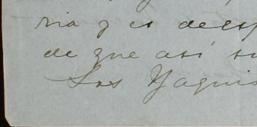 ria y es de esp
de que así su
Los Yaquis